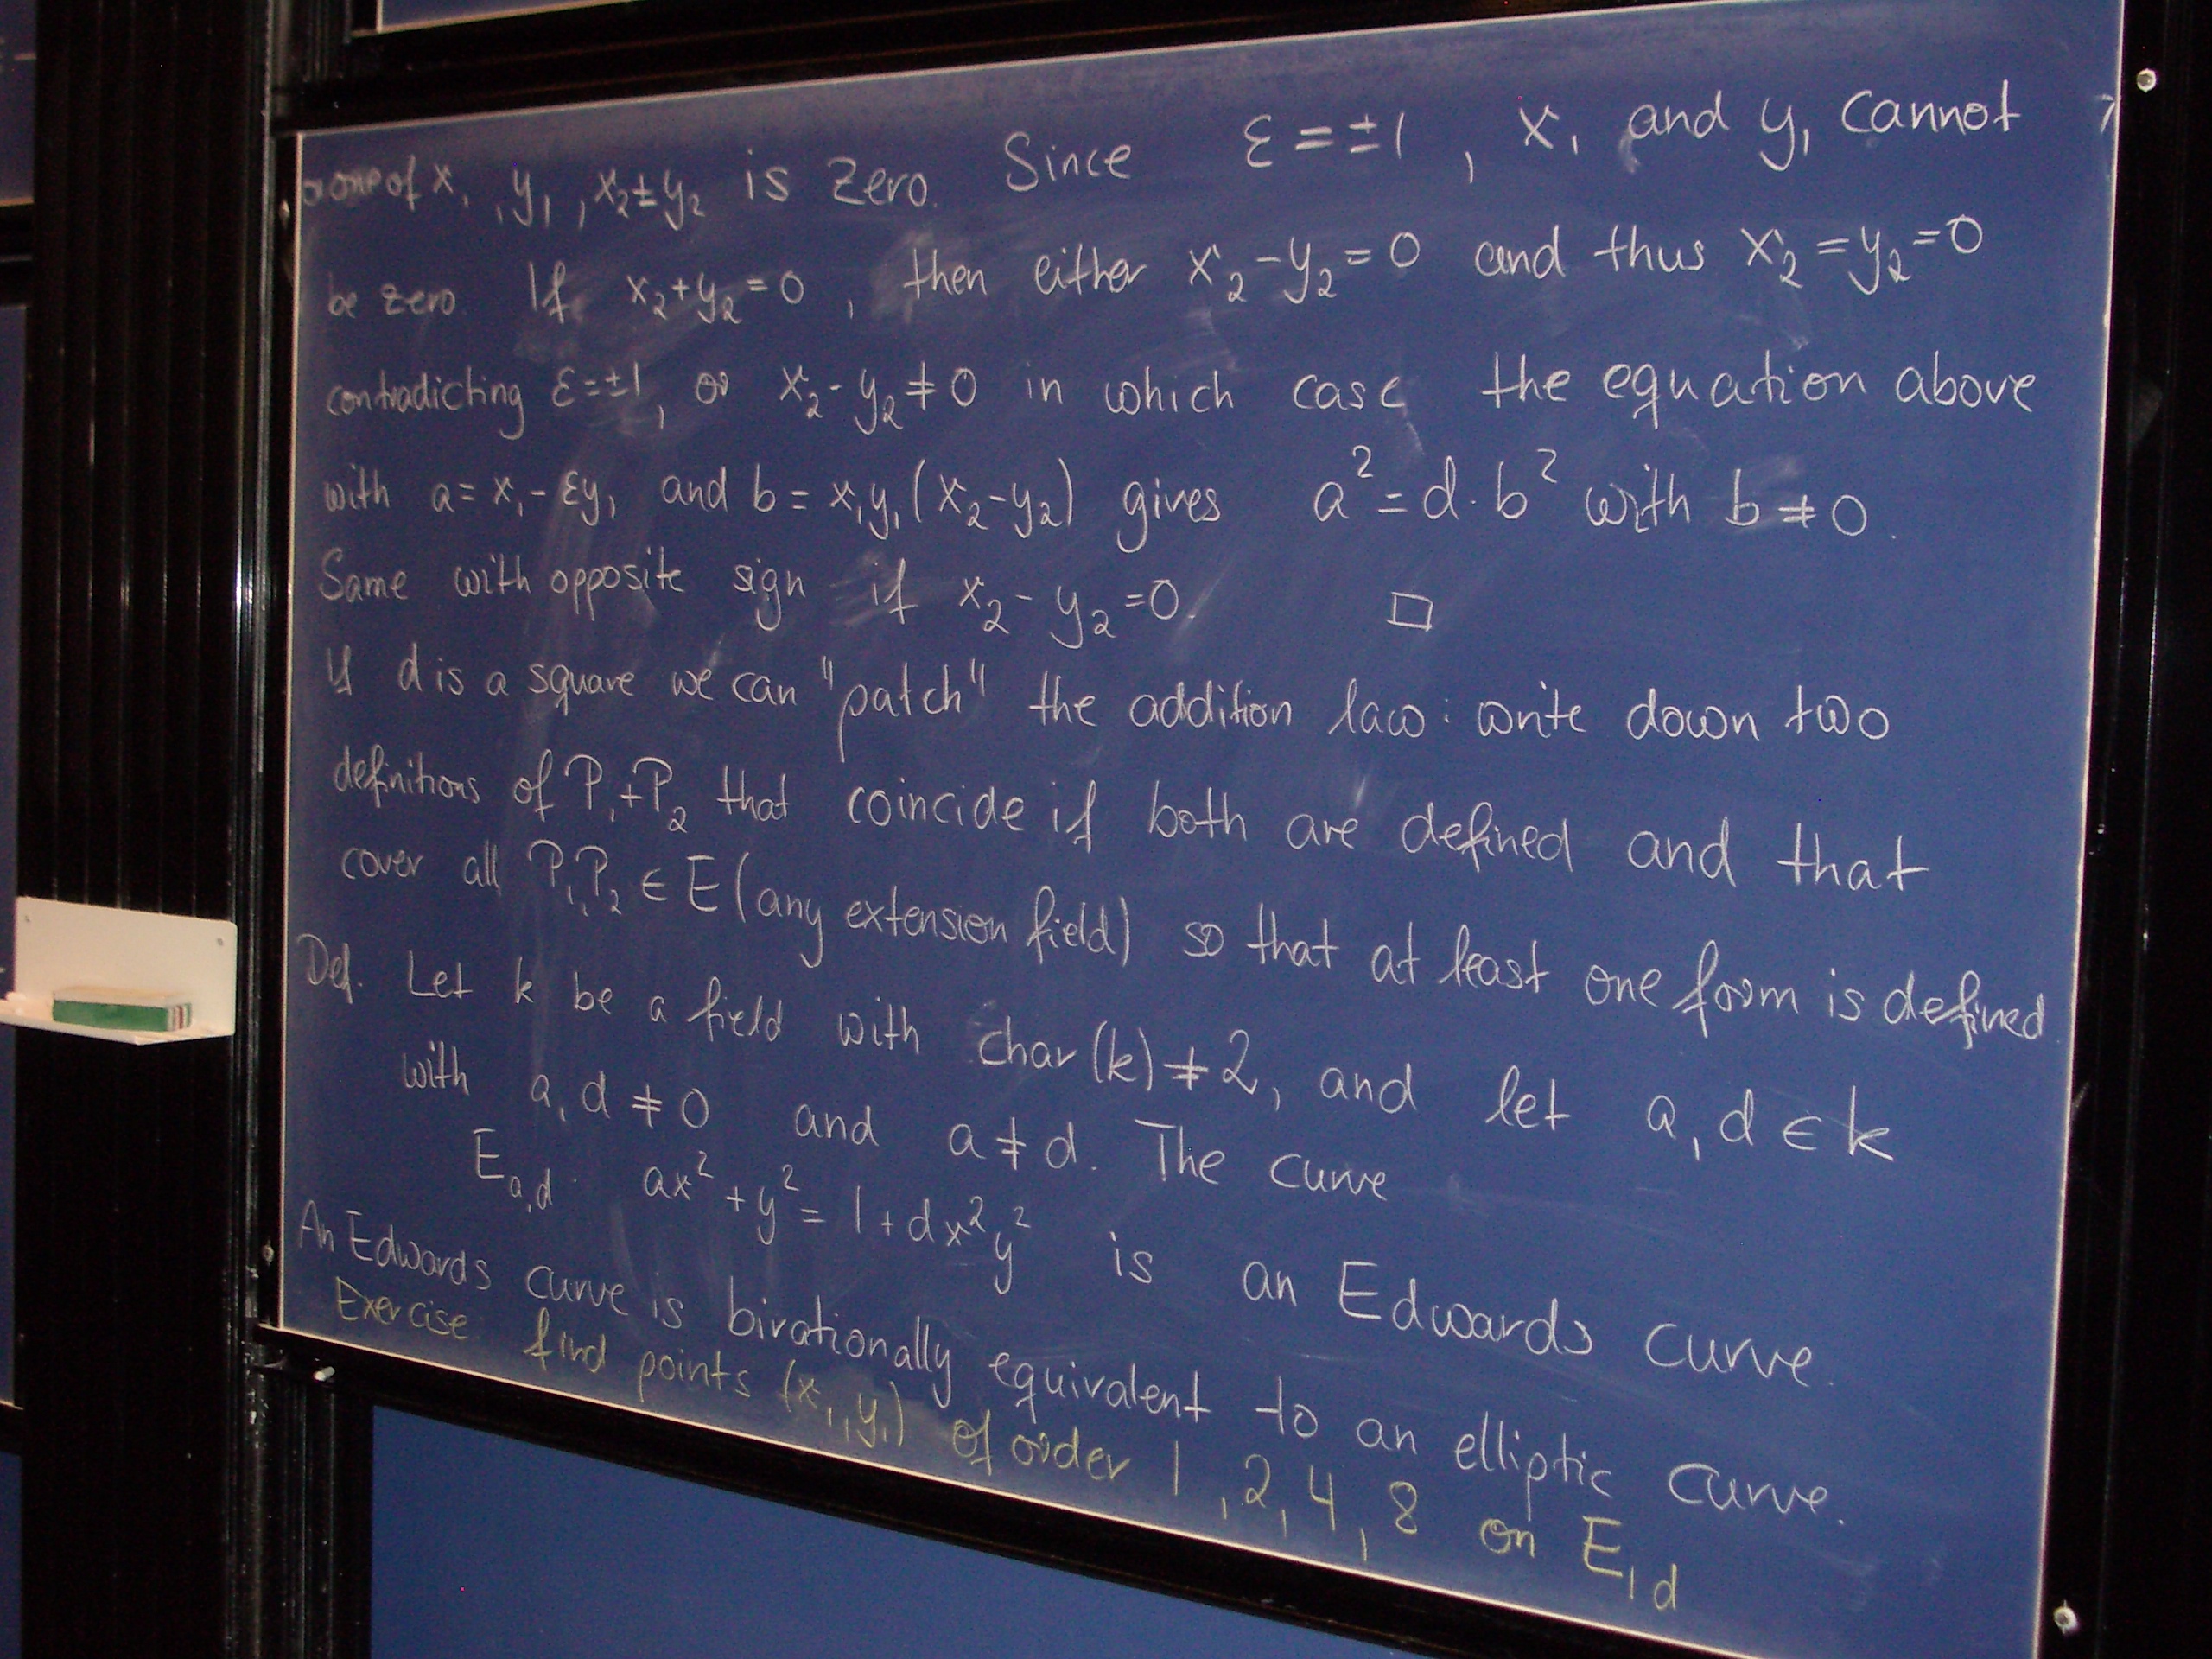 one of x₁, y₁, x₂±y₂ is zero. Since ε=±1, x₁ and y₁ cannot
be zero. If x₂+y₂=0, then either x₂-y₂=0 and thus x₂=y₂=0
contradicting ε=±1, or x₂-y₂≠0 in which case the equation above
with a=x₁-εy₁ and b=x₁y₁(x₂-y₂) gives a²=d·b² with b≠0.
Same with opposite sign if x₂-y₂=0. □
If d is a square we can "patch" the addition law: write down two
definitions of P₁+P₂ that coincide if both are defined and that
cover all P₁,P₂ ∈ E(any extension field) so that at least one form is defined
Def. Let k be a field with char(k)≠2, and let a,d∈k
with a,d≠0 and a≠d. The curve
E_{a,d}: ax²+y²=1+dx²y² is an Edwards curve.
An Edwards curve is birationally equivalent to an elliptic curve.
Exercise: find points (x₁,y₁) of order 1,2,4,8 on E_{1,d}